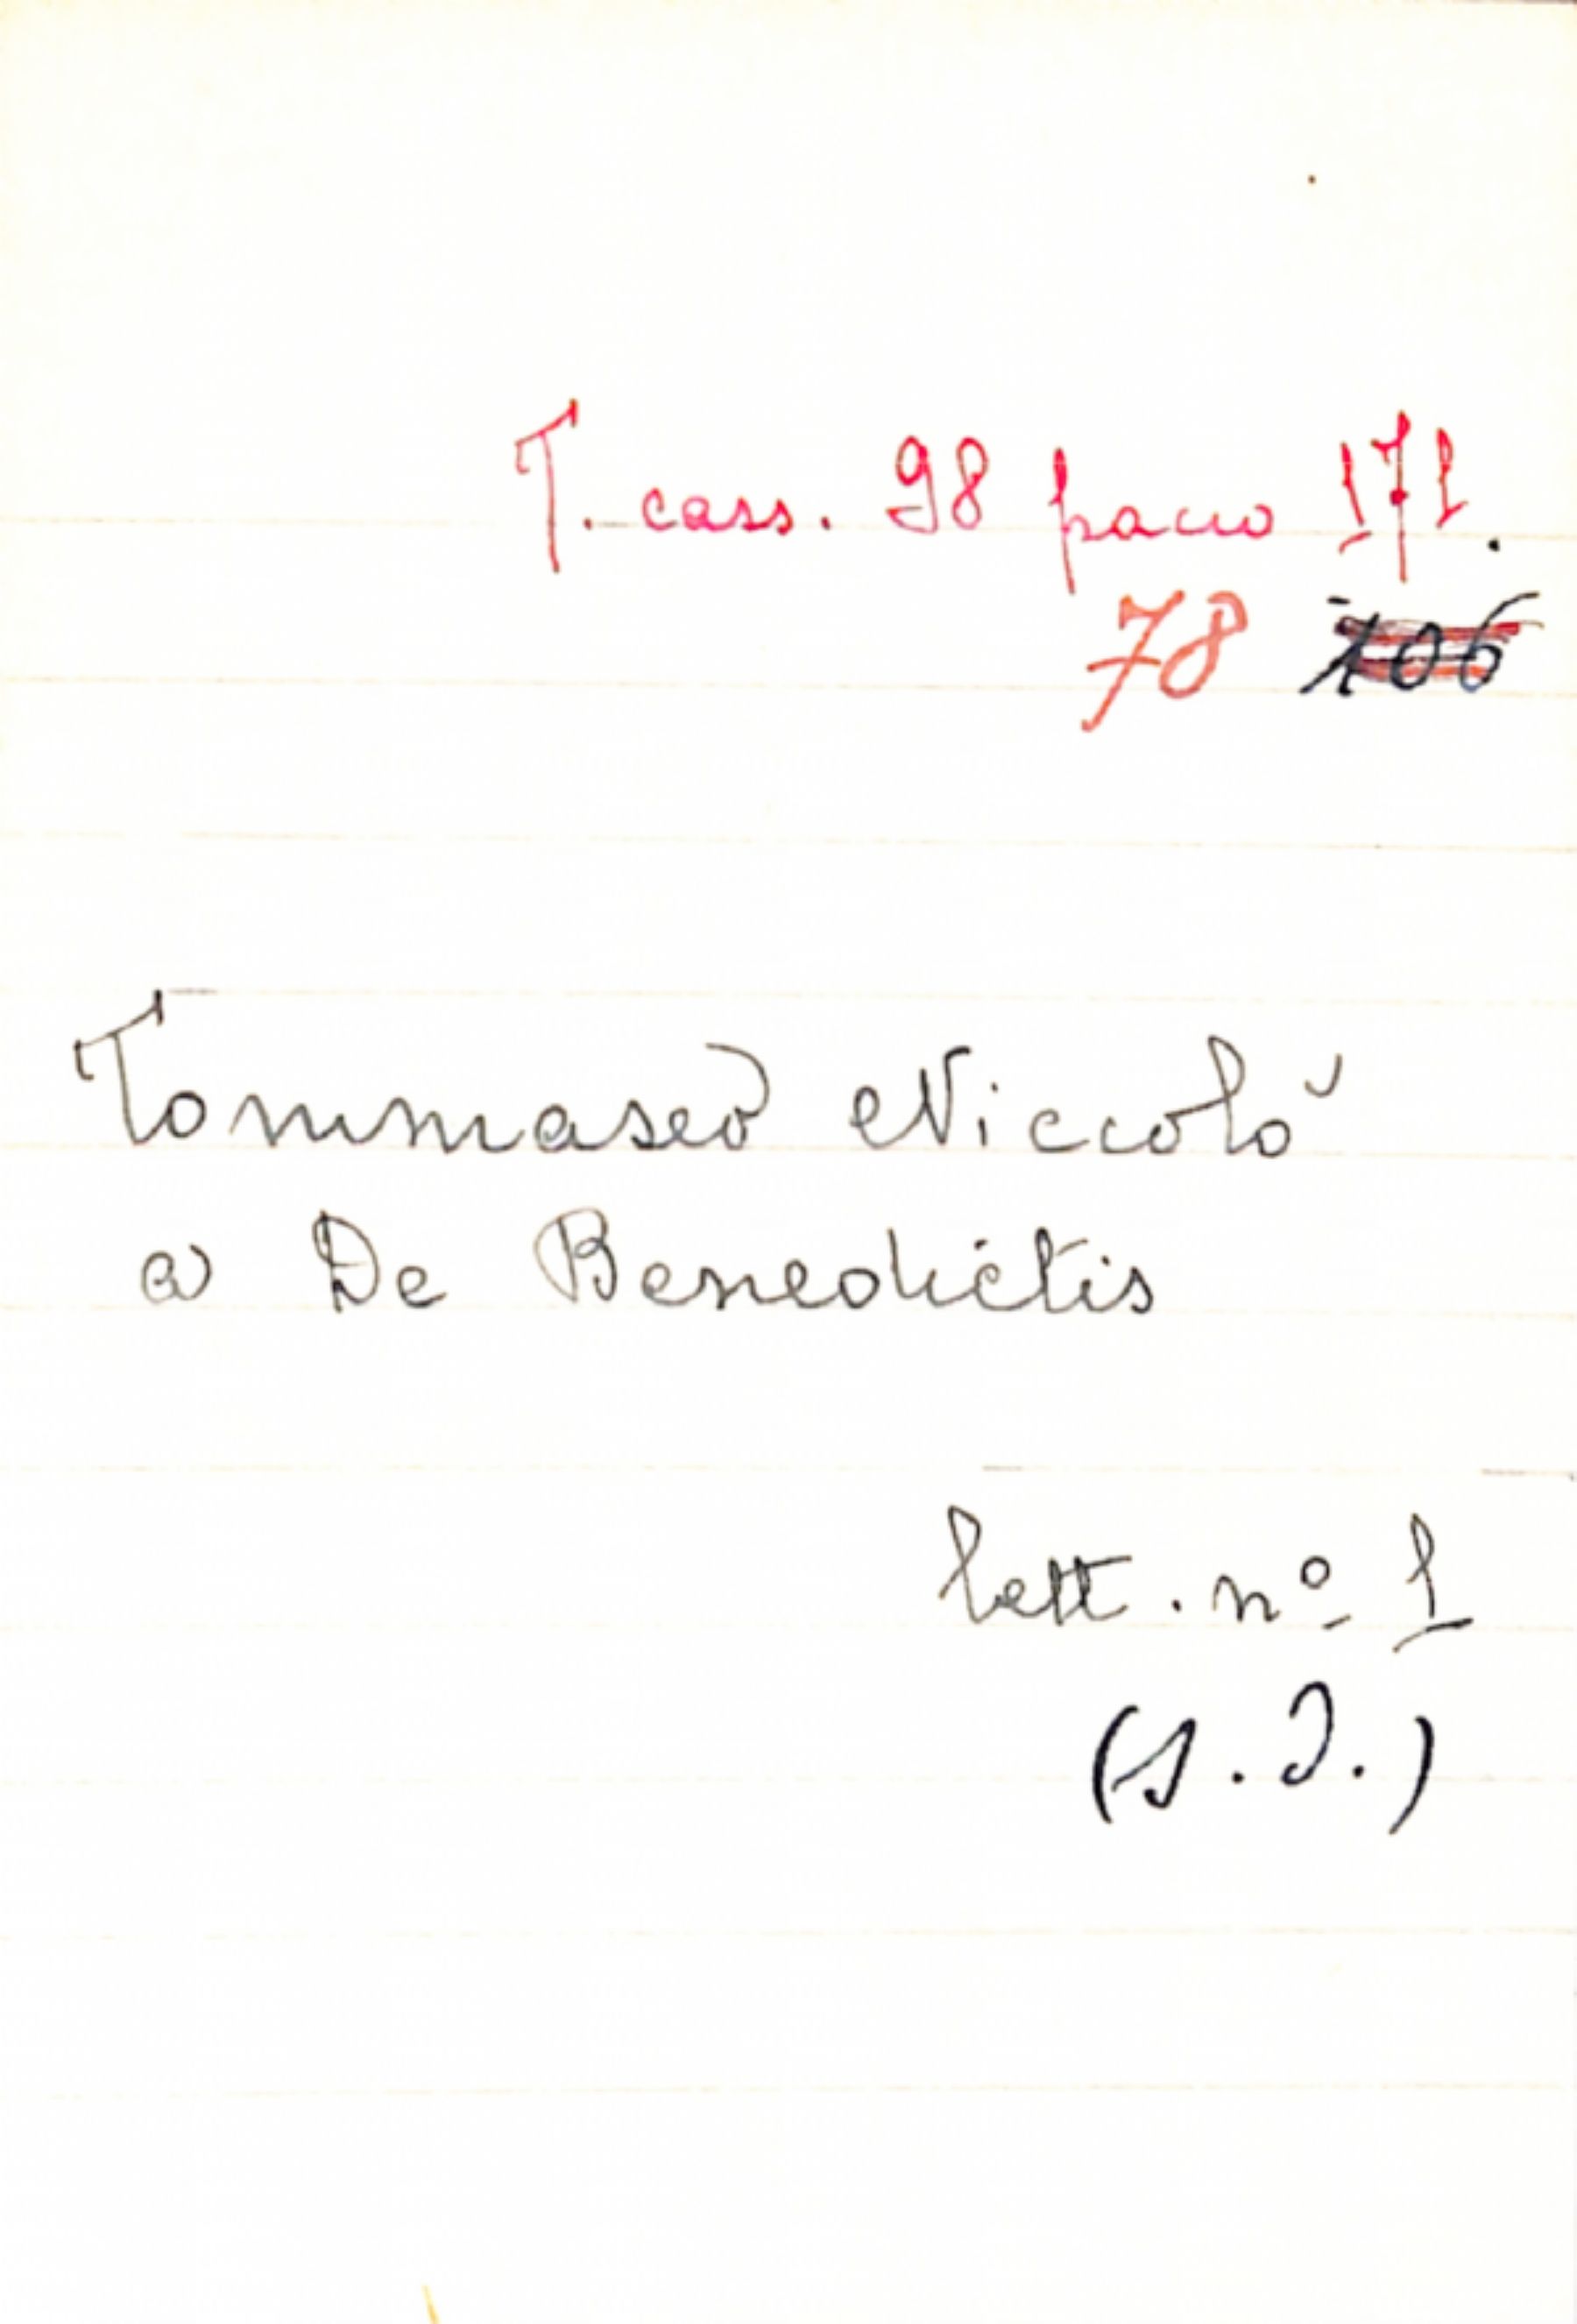 T. cass. 98 pacco 171.
78 106
Tommaseo Niccolò
a De Benedictis
lett. nº 1
(s.d.)